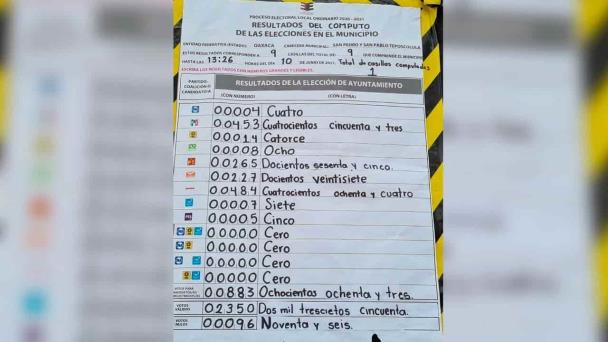 PROCESO ELECTORAL LOCAL ORDINARIO 2020 - 2021
RESULTADOS DEL COMPUTO
DE LAS ELECCIONES EN EL MUNICIPIO
ENTIDAD FEDERATIVA (ESTADO): OAXACA CABECERA MUNICIPAL: SAN PEDRO Y SAN PABLO TEPOSCOLULA
ESTOS RESULTADOS CORRESPONDEN A 9 CASILLAS DEL TOTAL DE 9 QUE COMPRENDE EL MUNICIPIO
HASTA LAS 13:26 HORAS DEL DIA 10 DE JUNIO DE 2021. Total de casillas computadas
ESCRIBA LOS RESULTADOS CON NUMEROS GRANDES Y LEGIBLES. 1
PARTIDO, COALICIÓN O CANDIDATURA
RESULTADOS DE LA ELECCIÓN DE AYUNTAMIENTO
(CON NÚMERO) (CON LETRA)
00004 Cuatro
00453 Cuatrocientos cincuenta y tres
00014 Catorce
00008 Ocho
00265 Docientos sesenta y cinco.
00227 Docientos veintisiete
00484 Cuatrocientos ochenta y cuatro
00007 Siete
PES 00005 Cinco
00000 Cero
00000 Cero
00000 Cero
00000 Cero
00883 Ochocientos ochenta y tres.
VOTOS VÁLIDOS 02350 Dos mil trescietos cincuenta.
VOTOS NULOS 00096 Noventa y seis.